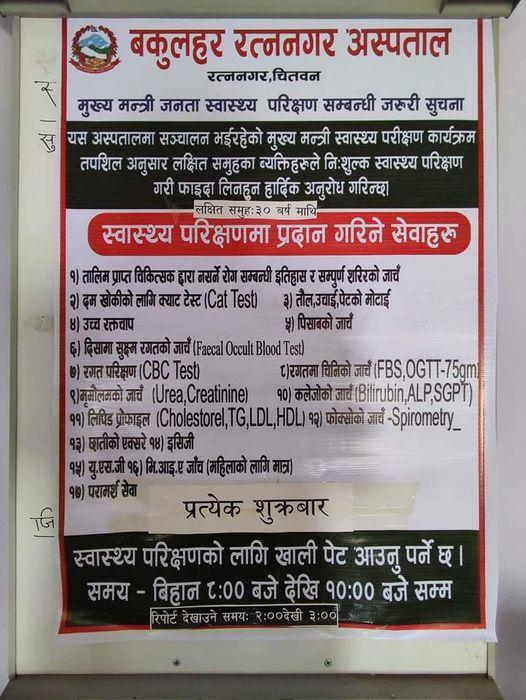 बकुलहर रत्ननगर अस्पताल
रत्ननगर,चितवन
मुख्य मन्त्री जनता स्वास्थ्य परिक्षण सम्बन्धी जरूरी सुचना
यस अस्पतालमा सञ्चालन भईरहेको मुख्य मन्त्री स्वास्थ्य परीक्षण कार्यक्रम
तपशिल अनुसार लक्षित समुहका ब्यक्तिहरूले नि:शुल्क स्वास्थ्य परिक्षण
गरी फाइदा लिनहुन हार्दिक अनुरोध गरिन्छ।
लक्षित समुह:३० बर्ष माथि
स्वास्थ्य परिक्षणमा प्रदान गरिने सेवाहरू
१) तालिम प्राप्त चिकित्सक द्वारा नसर्ने रोग सम्बन्धी इतिहास र सम्पुर्ण शरिरको जाँच
२) दम खोकीको लागि क्याट टेस्ट (Cat Test) ३) तौल,उचाई,पेटको मोटाई
४) उच्च रक्तचाप ५) पिसाबको जाँच
६) दिसामा सुक्ष्म रगतको जाँच (Faecal Occult Blood Test)
७) रगत परिक्षण (CBC Test) ८)रगतमा चिनिको जाँच (FBS,OGTT-75gm)
९)मृगौलाको जाँच (Urea,Creatinine) १०) कलेजोको जाँच (Bilirubin,ALP,SGPT)
११) लिपिड प्रोफाइल (Cholestorel,TG,LDL,HDL) १२) फोक्सोको जाँच -Spirometry_
१३) छातीको एक्सरे १४) इसिजी
१५) यु.एस.जी १६) भि.आइ.ए जाँच (महिलाको लागि मात्र)
१७) परामर्श सेवा
प्रत्येक शुक्रबार
स्वास्थ्य परिक्षणको लागि खाली पेट आउनु पर्ने छ ।
समय - बिहान ८:०० बजे देखि १०:०० बजे सम्म
रिपोर्ट देखाउने समय: २:००देखी ३:००